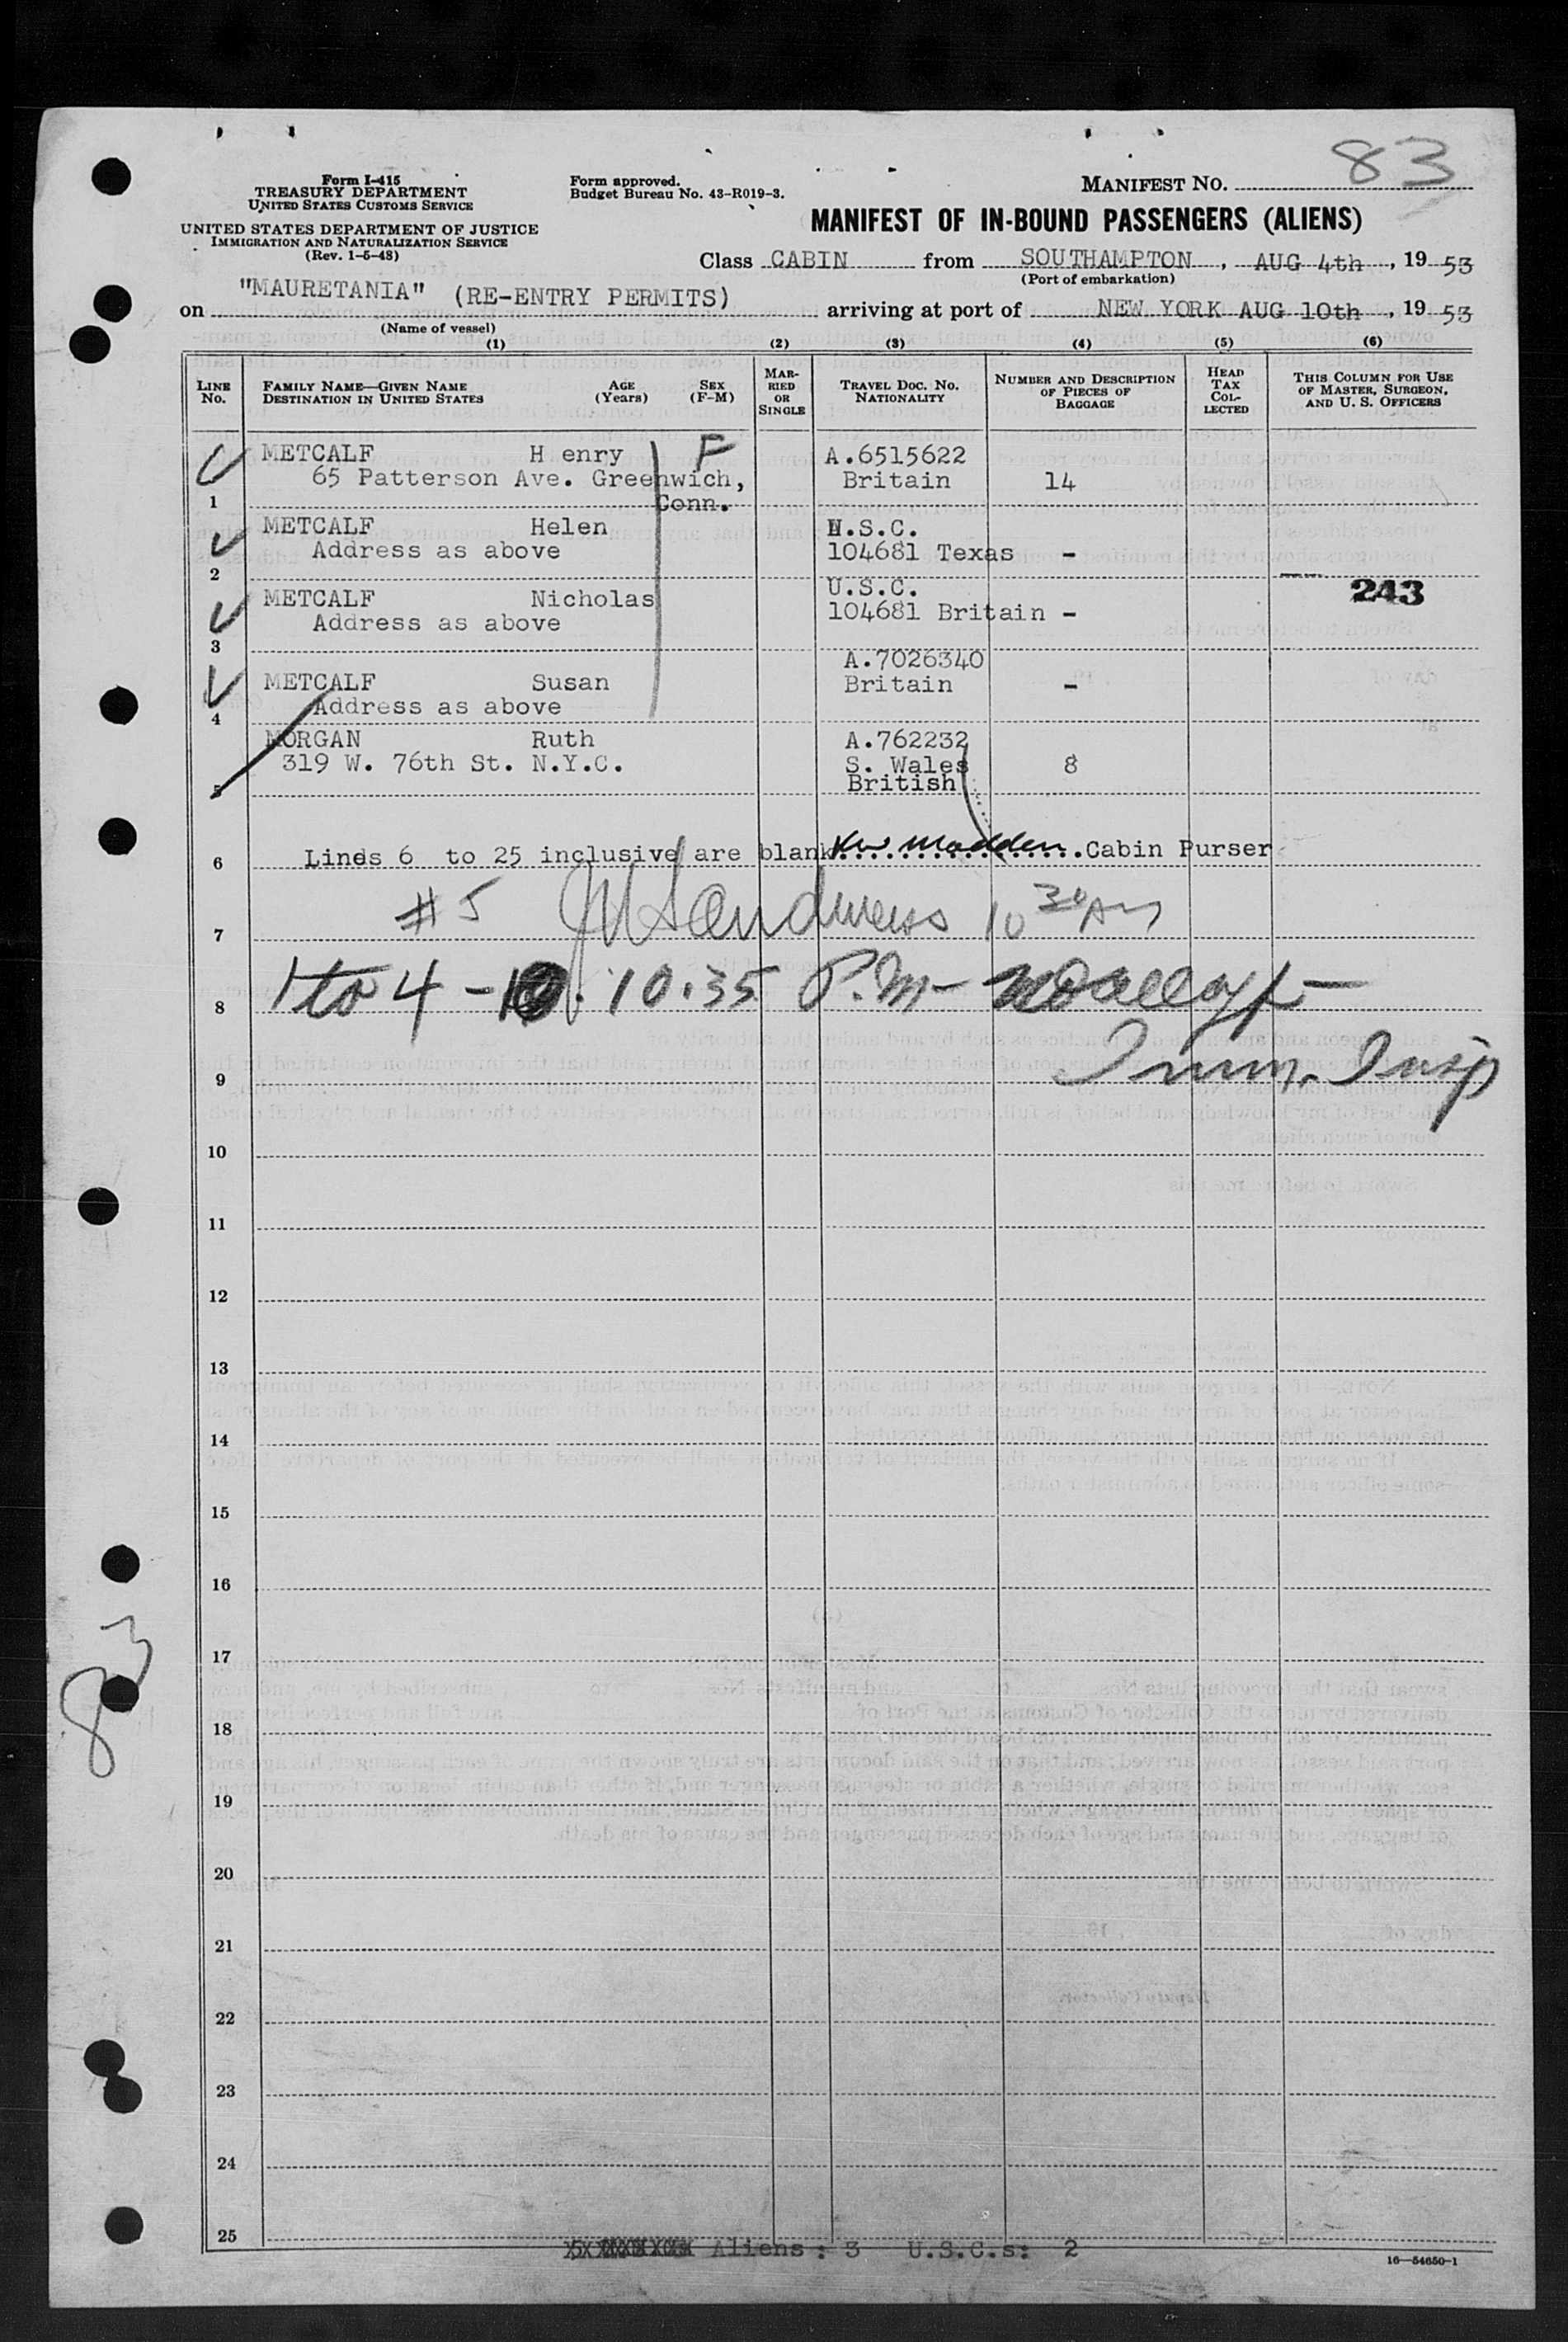 83
Form I-415
TREASURY DEPARTMENT
UNITED STATES CUSTOMS SERVICE
UNITED STATES DEPARTMENT OF JUSTICE
IMMIGRATION AND NATURALIZATION SERVICE
(Rev. 1-5-48)
Form approved.
Budget Bureau No. 43-R019-3.
MANIFEST NO.
MANIFEST OF IN-BOUND PASSENGERS (ALIENS)
Class CABIN from SOUTHAMPTON, AUG 4th, 19 53
(Port of embarkation)
on "MAURETANIA" (RE-ENTRY PERMITS) arriving at port of NEW YORK AUG 10th, 19 53
(Name of vessel)
(1) (2) (3) (4) (5) (6)
LINE No. FAMILY NAME—GIVEN NAME DESTINATION IN UNITED STATES AGE (Years) SEX (F-M) MARRIED OR SINGLE TRAVEL DOC. NO. NATIONALITY NUMBER AND DESCRIPTION OF PIECES OF BAGGAGE HEAD TAX COLLECTED THIS COLUMN FOR USE OF MASTER, SURGEON, AND U. S. OFFICERS
METCALF H enry F A.6515622
65 Patterson Ave. Greenwich, Britain 14
1 Conn.
METCALF Helen U.S.C.
Address as above 104681 Texas -
2
U.S.C.
METCALF Nicholas 243
Address as above 104681 Britain -
3
A.7026340
METCALF Susan Britain -
Address as above
4
MORGAN Ruth A.762232
319 W. 76th St. N.Y.C. S. Wales 8
British
5
6 Lines 6 to 25 inclusive are blank Madden Cabin Purser
#5 10 30 AM
7
1 to 4 - 10.35 P.M-
8
Imm. Insp
9
10
11
12
13
14
15
16
17
83
18
19
20
21
22
23
24
25
Aliens: 3 U.S.C.s: 2
16—54650-1